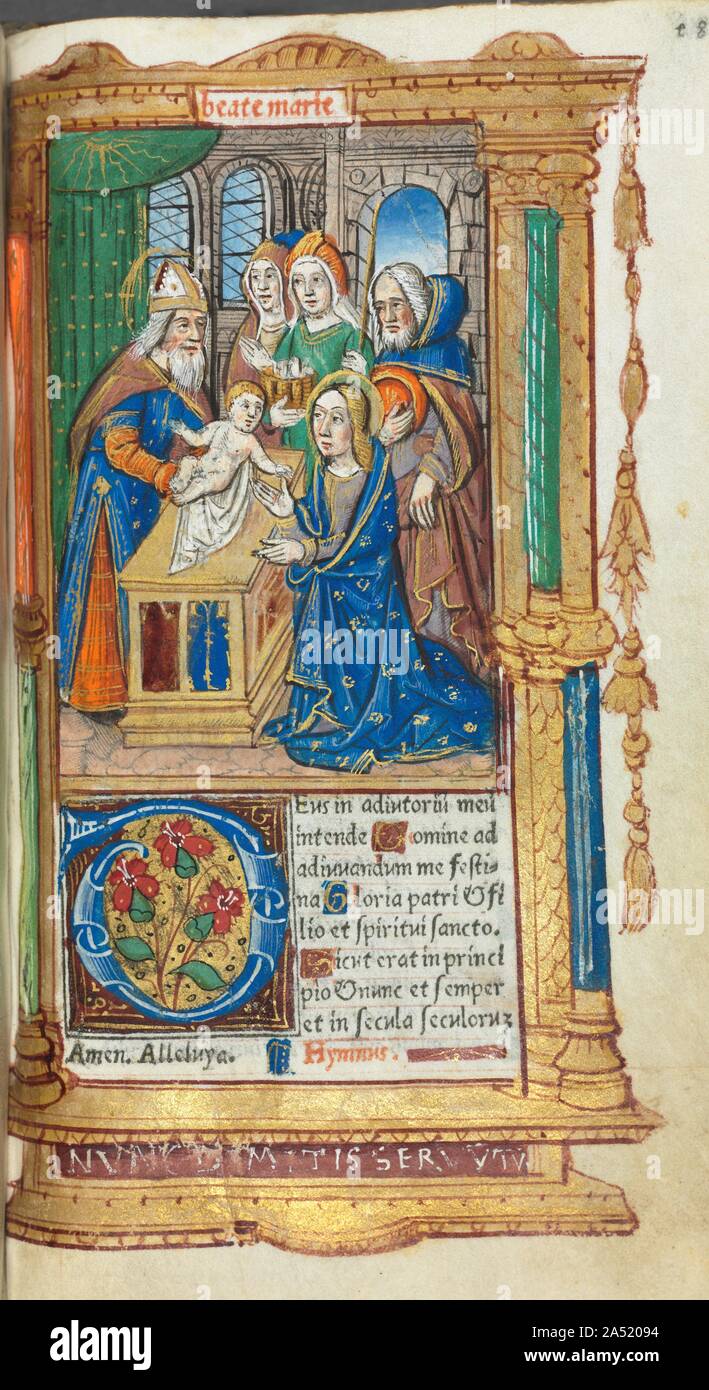 e 8
beate marie
Eus in adiutoriū meū
intende Domine ad
adiuvandum me festi-
na Gloria patri & fi
lio et spiritui sancto.
Sicut erat in princi
pio & nunc et semper
et in secula seculoruz
Amen. Alleluya. Hymnus.
NVNC DIMITIS SERVVTV
alamy
Image ID: 2A52094
www.alamy.com